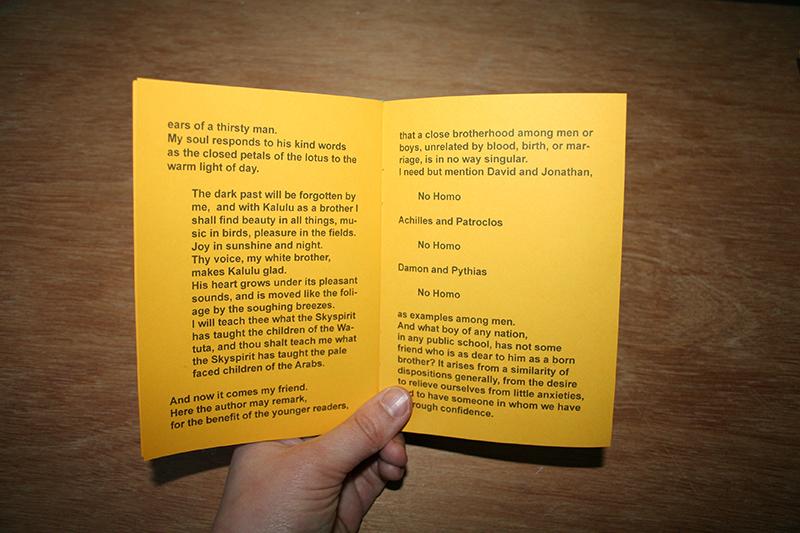 ears of a thirsty man.
My soul responds to his kind words
as the closed petals of the lotus to the
warm light of day.
The dark past will be forgotten by
me, and with Kalulu as a brother I
shall find beauty in all things, mu-
sic in birds, pleasure in the fields.
Joy in sunshine and night.
Thy voice, my white brother,
makes Kalulu glad.
His heart grows under its pleasant
sounds, and is moved like the foli-
age by the soughing breezes.
I will teach thee what the Skyspirit
has taught the children of the Wa-
tuta, and thou shalt teach me what
the Skyspirit has taught the pale
faced children of the Arabs.
And now it comes my friend.
Here the author may remark,
for the benefit of the younger readers,
that a close brotherhood among men or
boys, unrelated by blood, birth, or mar-
riage, is in no way singular.
I need but mention David and Jonathan,
No Homo
Achilles and Patroclos
No Homo
Damon and Pythias
No Homo
as examples among men.
And what boy of any nation,
in any public school, has not some
friend who is as dear to him as a born
brother? It arises from a similarity of
dispositions generally, from the desire
to relieve ourselves from little anxieties,
to have someone in whom we have
confidence.